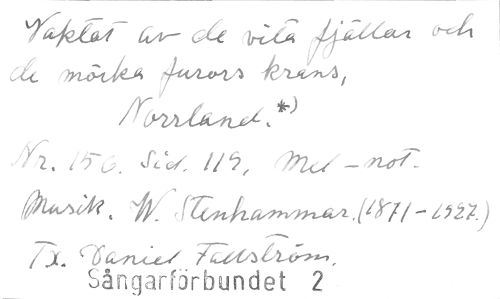 Vaktat av de vita fjällar och
de mörka furors krans,
Norrland.*)
Nr. 156. Sid. 119, Mel-not.
Musik. W. Stenhammar. (1871-1927.)
Tx. Daniel Fallström.
Sångarförbundet 2